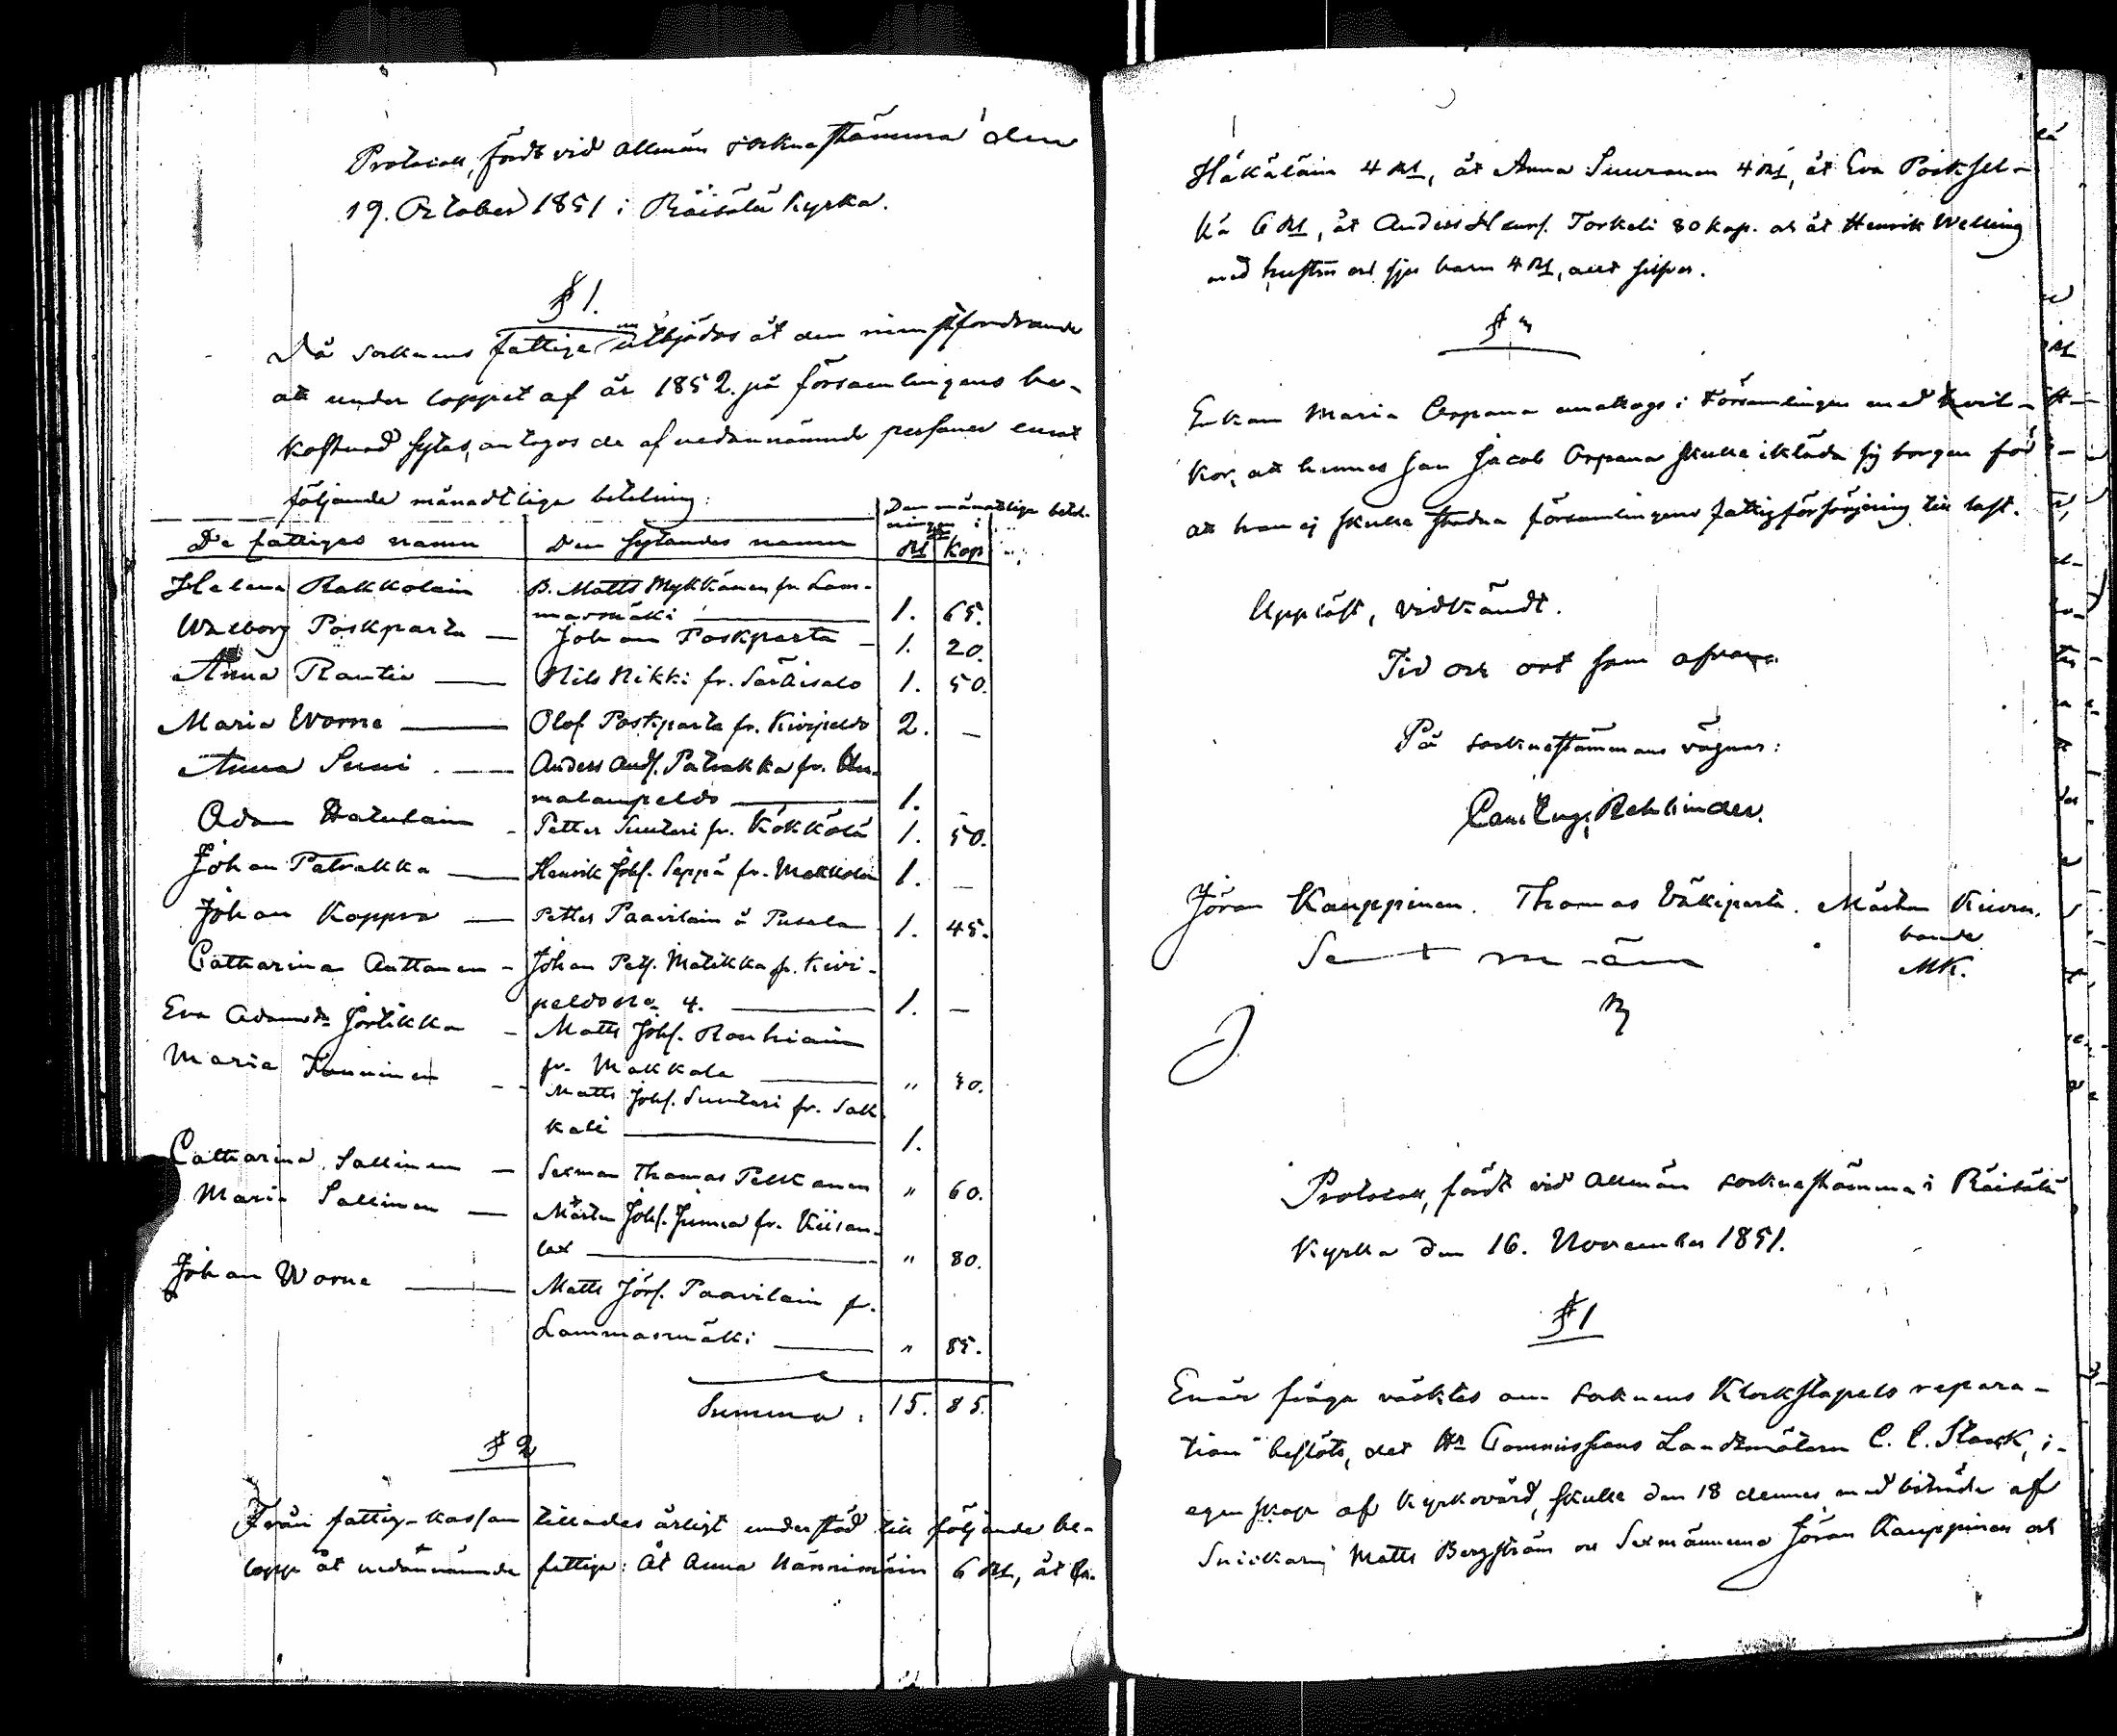 Protocoll, fördt vid allmän sockne stämma den
19. October 1851 i Räisälä Kyrka.
§ 1.
Då socknens fattige utbjödos åt den minstfordrande
att under loppet af år 1852 på församlingens be-
kostnad skötas, antogos de af nedannämnde personer emot
följande månadtliga betalning:
De fattiges namn Den skötandes namn Den månatliga betal-
ningen i
Rbl Kop
Helena Rakkolain B. Matts Mykkänen fr. Lam-
masmäki 1. 65.
Walborg Poskparta — Johan Poskparta — 1. 20.
Anna Rautio — Nils Nikki fr. Särkisalo 1. 50.
Maria Worne — Olof Poskparta fr. Kivipeldo 2. —
Anna Suni — Anders Andss. Patrakka fr. Un-
nalanpeldo — 1. —
Adam Hatulain — Petter Suutari fr. Kökkölä 1. 50.
Johan Patrakka — Henrik Johss. Seppä fr. Makkola 1. —
Johan Koppra — Petter Paavilain å Pusala 1. 45.
Catharina Anttonen — Johan Petss. Matikka fr. Kivi-
peldo No 4. — 1. —
Eva Adamsdr Jortikka — Matts Johss. Rouhiain
fr. Makkola — " 30.
Maria Kanninen — Matts Johss. Suutari fr. Salk
kali — 1.
Catharina Sallinen — Sexman Thomas Pelkonen " 60.
Maria Sallinen — Mårten Johss. Junna fr. Kiisan-
lax — " 80.
Johan Worne — Matts Jörss. Paavilain fr.
Lammasmäki — " 85.
Summa. 15. 85.
§ 2
Från fattig-kassan tillades årligt understöd till följande be-
lopp åt nedannämnde fattige: Åt Anna Nännimäin 6 Rbl, åt
Häkäläin 4 Rbl, åt Anna Suuronen 4 Rbl, åt Eva Poiksel-
kä 6 Rbl, åt Anders Henrss. Torkeli 80 kop. och åt Henrik Welling
med hustru och sju barn 4 Rbl, allt silfver.
§ 3
Enkan Maria Orpana emottogs i Församlingen med vil-
kor, att hennes son Jacob Orpana skulle ikläda sig borgen för
att hon ej skulle stadna församlingens fattigförsörjning till last.
Uppläst, vidkändt.
Tid och ort som ofvan.
På socknestämmans vägnar:
Carl Eug. Rehbinder.
Jöran Kauppinen. Thomas Väkiparta. Mårten Kiuru.
bonde
MK.
Sexmän
Protocoll, fördt vid allmän sockne stämma i Räisälä
Kyrka den 16. November 1851.
§ 1
Enär fråga väcktes om socknens Klockstapels repara-
tion beslöts, det Hr Commissions Landtmätaren C. C. Stack, i-
egenskap af Kyrkovärd, skulle den 18 dennes, med biträde af
Snickarn Matts Bergström och Sexmännerna Jöran Kauppinen och